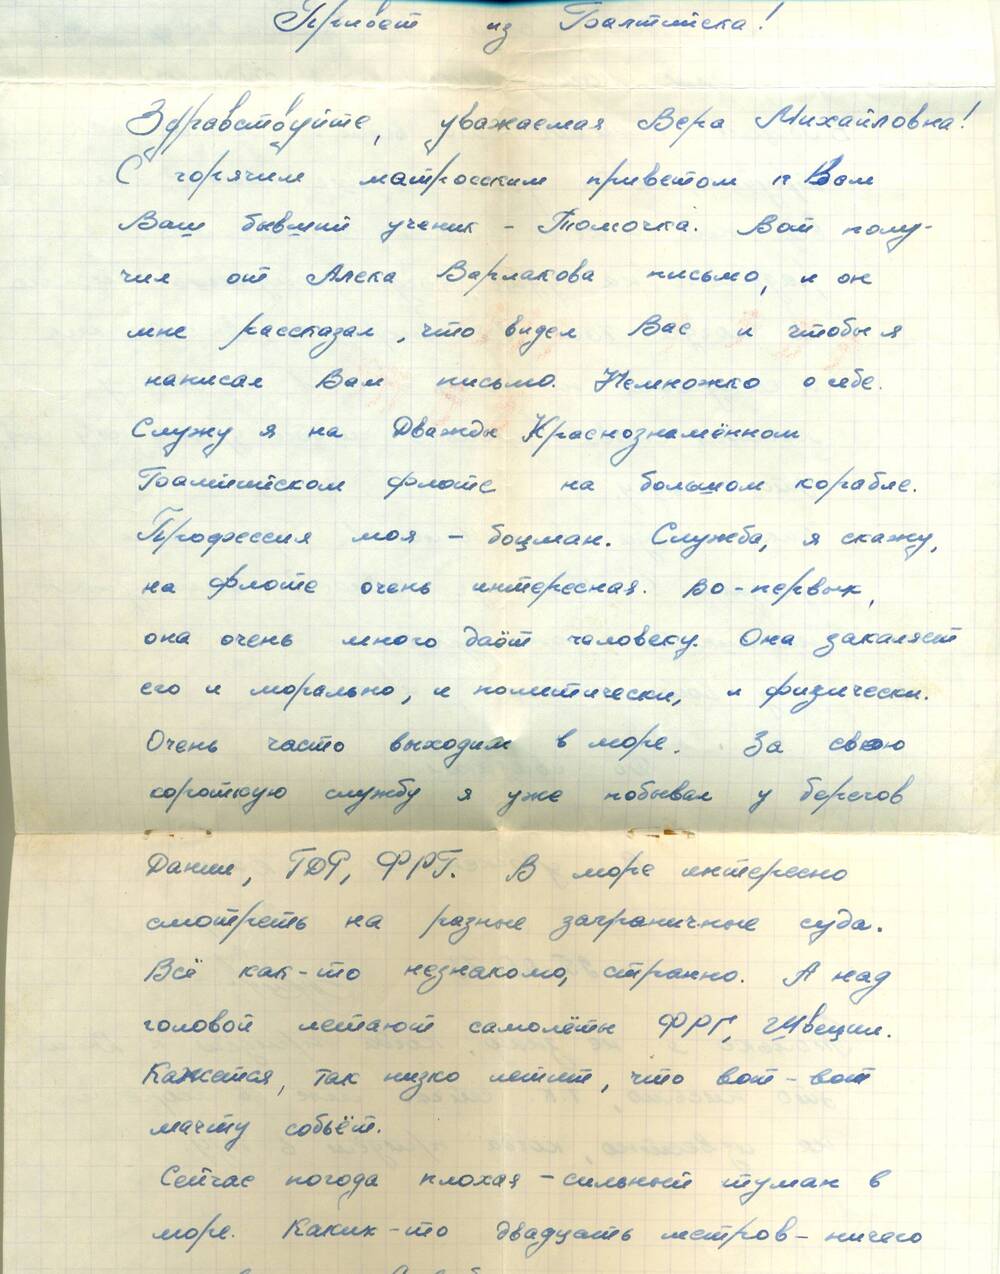 Привет из Балтийска!
Здравствуйте, уважаемая Вера Михайловна!
С горячим матросским приветом к Вам
Ваш бывший ученик - Томочка. Вот полу-
чил от Алека Варлакова письмо, и он
мне рассказал, что видел Вас и чтобы я
написал Вам письмо. Немножко о себе.
Служу я на Дважды Краснознамённом
Балтийском флоте на большом корабле.
Профессия моя - боцман. Служба, я скажу,
на флоте очень интересная. Во-первых,
она очень много даёт человеку. Она закаляет
его и морально, и политически, и физически.
Очень часто выходим в море. За свою
короткую службу я уже побывал у берегов
Дании, ГДР, ФРГ. В море интересно
смотреть на разные заграничные суда.
Всё как-то незнакомо, странно. А над
головой летают самолёты ФРГ, Швеции.
Кажется, так низко летит, что вот-вот
мачту собьёт.
Сейчас погода плохая - сильный туман в
море. Каких-то двадцать метров - ничего